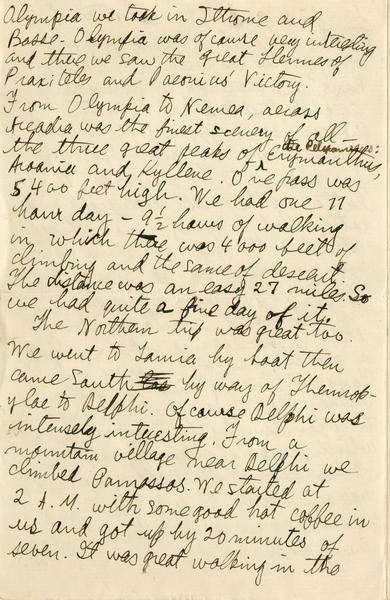 Olympia we took in Ithome and
Basse - Olympia was of course very interesting
and there we saw the great Hermes of
Praxiteles and Paeonius' Victory.
From Olympia to Nemea, across
Arcadia was the finest scenery of all
the Peloponnesus:
the three great peaks of Erymanthus,
Aroania and Kyllene. One pass was
5400 feet high. We had one 11
hour day - 9½ hours of walking
in which there was 4000 feet of
climbing and the same of descent.
The distance was an easy 27 miles. So
we had quite a fine day of it.
The Northern trip was great too.
We went to Lamia by boat then
came South by way of Thermop-
ylae to Delphi. Of course Delphi was
intensely interesting. From a
mountain village near Delphi we
climbed Parnassos. We started at
2 A.M. with some good hot coffee in
us and got up by 20 minutes of
seven. It was great walking in the